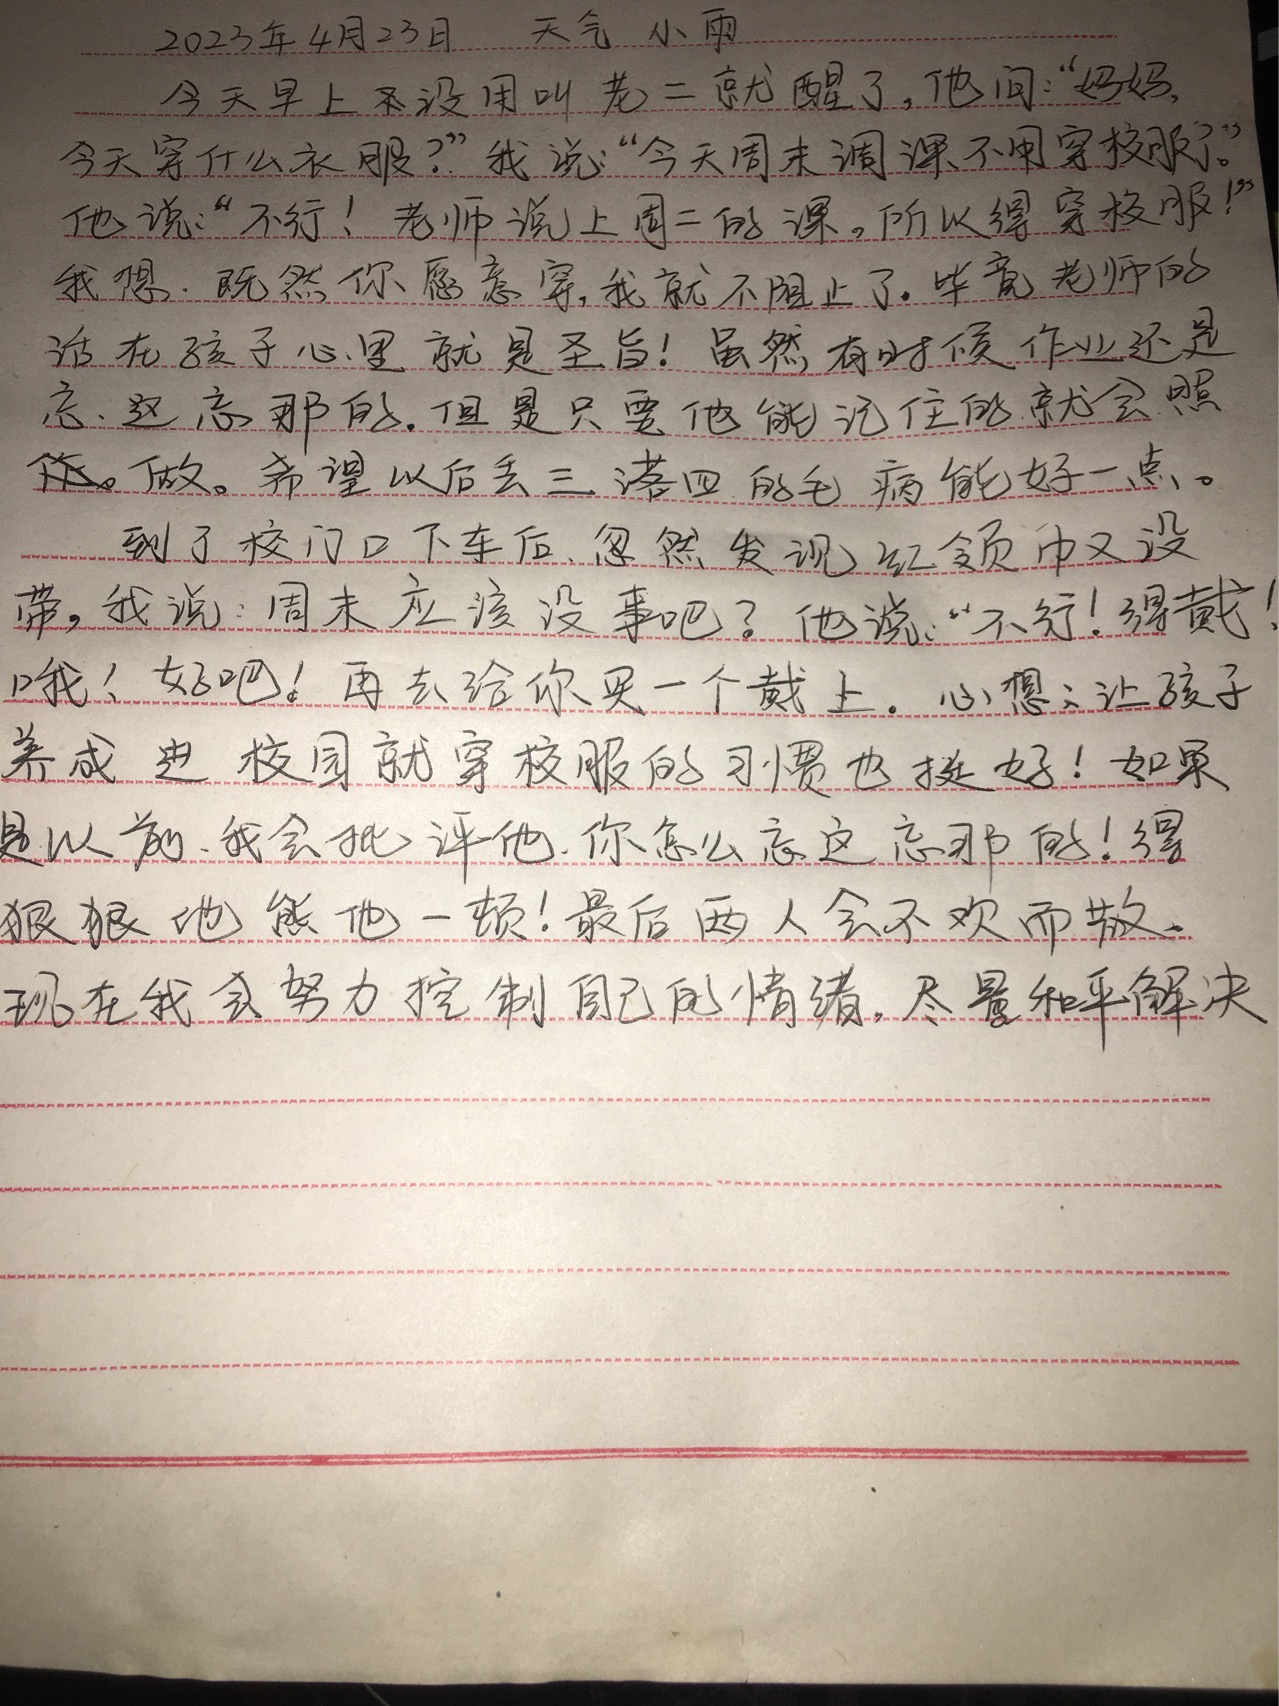 2023年4月23日 天气 小雨
今天早上 没用叫老二就醒了,他问:“妈妈,
今天穿什么衣服?”我说:“今天周末调课不用穿校服了。”
他说:“不行!老师说上周二的课,所以得穿校服!”
我想.既然你愿意穿,我就不阻止了.毕竟老师的
话在孩子心里就是圣旨!虽然有时候作业还是
忘.这忘那的.但是只要他能记住的就会照
做。希望以后丢三落四的毛病能好一点。
到了校门口下车后.忽然发现红领巾又没
带,我说:周末应该没事吧?他说:“不行!得戴!
哦!好吧!再去给你买一个戴上.心想:让孩子
养成进校园就穿校服的习惯也挺好!如果
是以前.我会批评他.你怎么忘这忘那的!得
狠狠地熊他一顿!最后两人会不欢而散.
现在我会努力控制自己的情绪,尽量和平解决